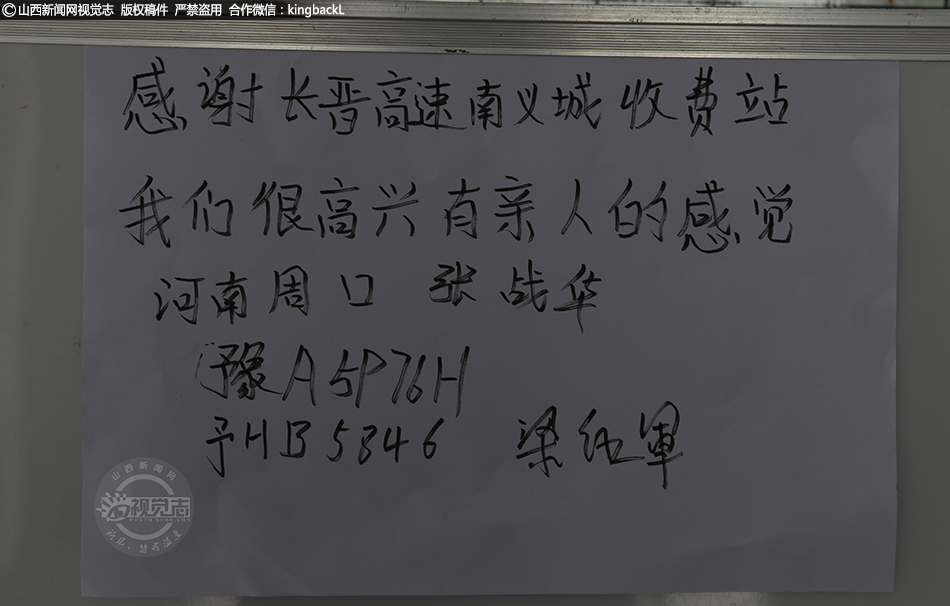 ©山西新闻网视觉志 版权稿件 严禁盗用 合作微信:kingbackL
感谢长晋高速南义城收费站
我们很高兴有亲人的感觉
河南周口 张战华
豫A5P76H
予HB5846 梁红军
山西新闻网
视觉志